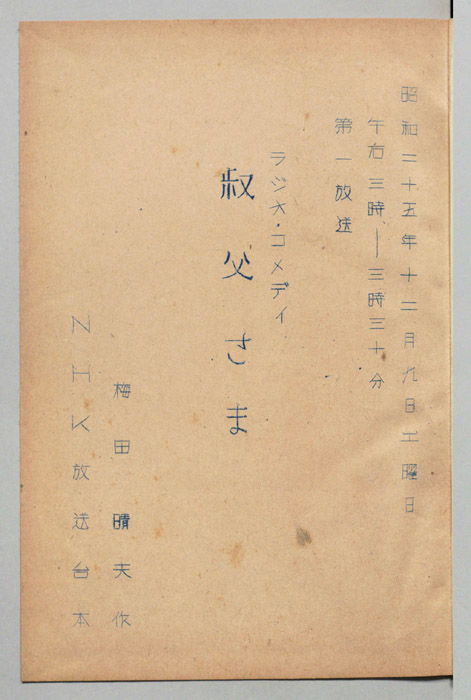 昭和二十五年十二月九日土曜日
午后三時―三時三十分
第一放送
ラジオ・コメディ
叔父さま
梅田晴夫作
NHK放送台本